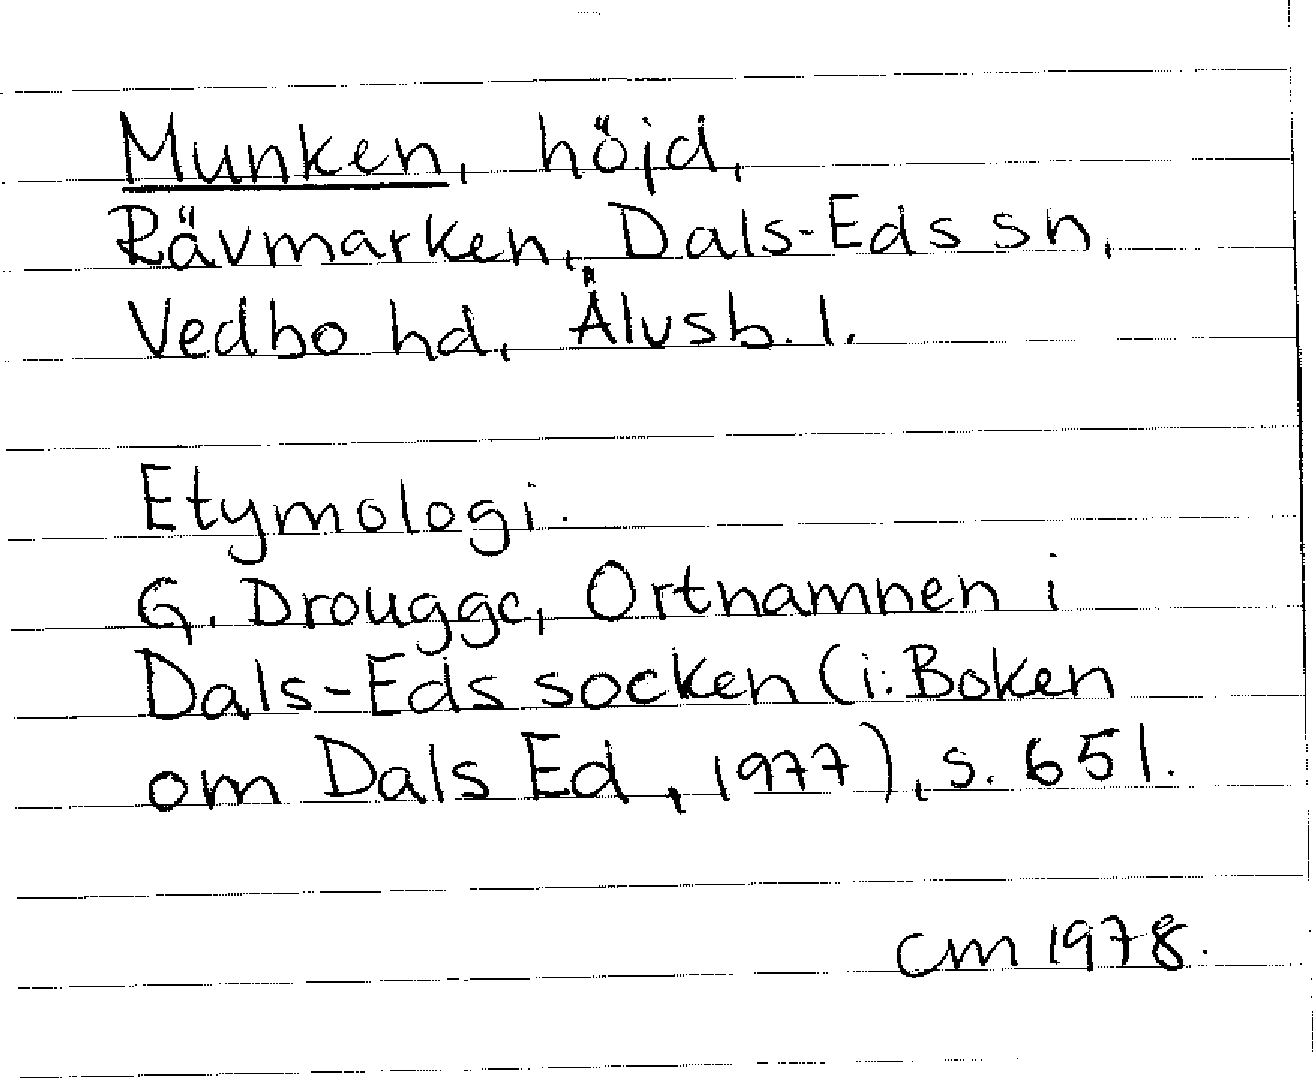 Munken, höjd,
Rävmarken, Dals-Eds sn,
Vedbo hd, Älvsb. l.
Etymologi.
G. Drougge, Ortnamnen i
Dals-Eds socken (i: Boken
om Dals Ed, 1977), s. 651.
cm 1978.